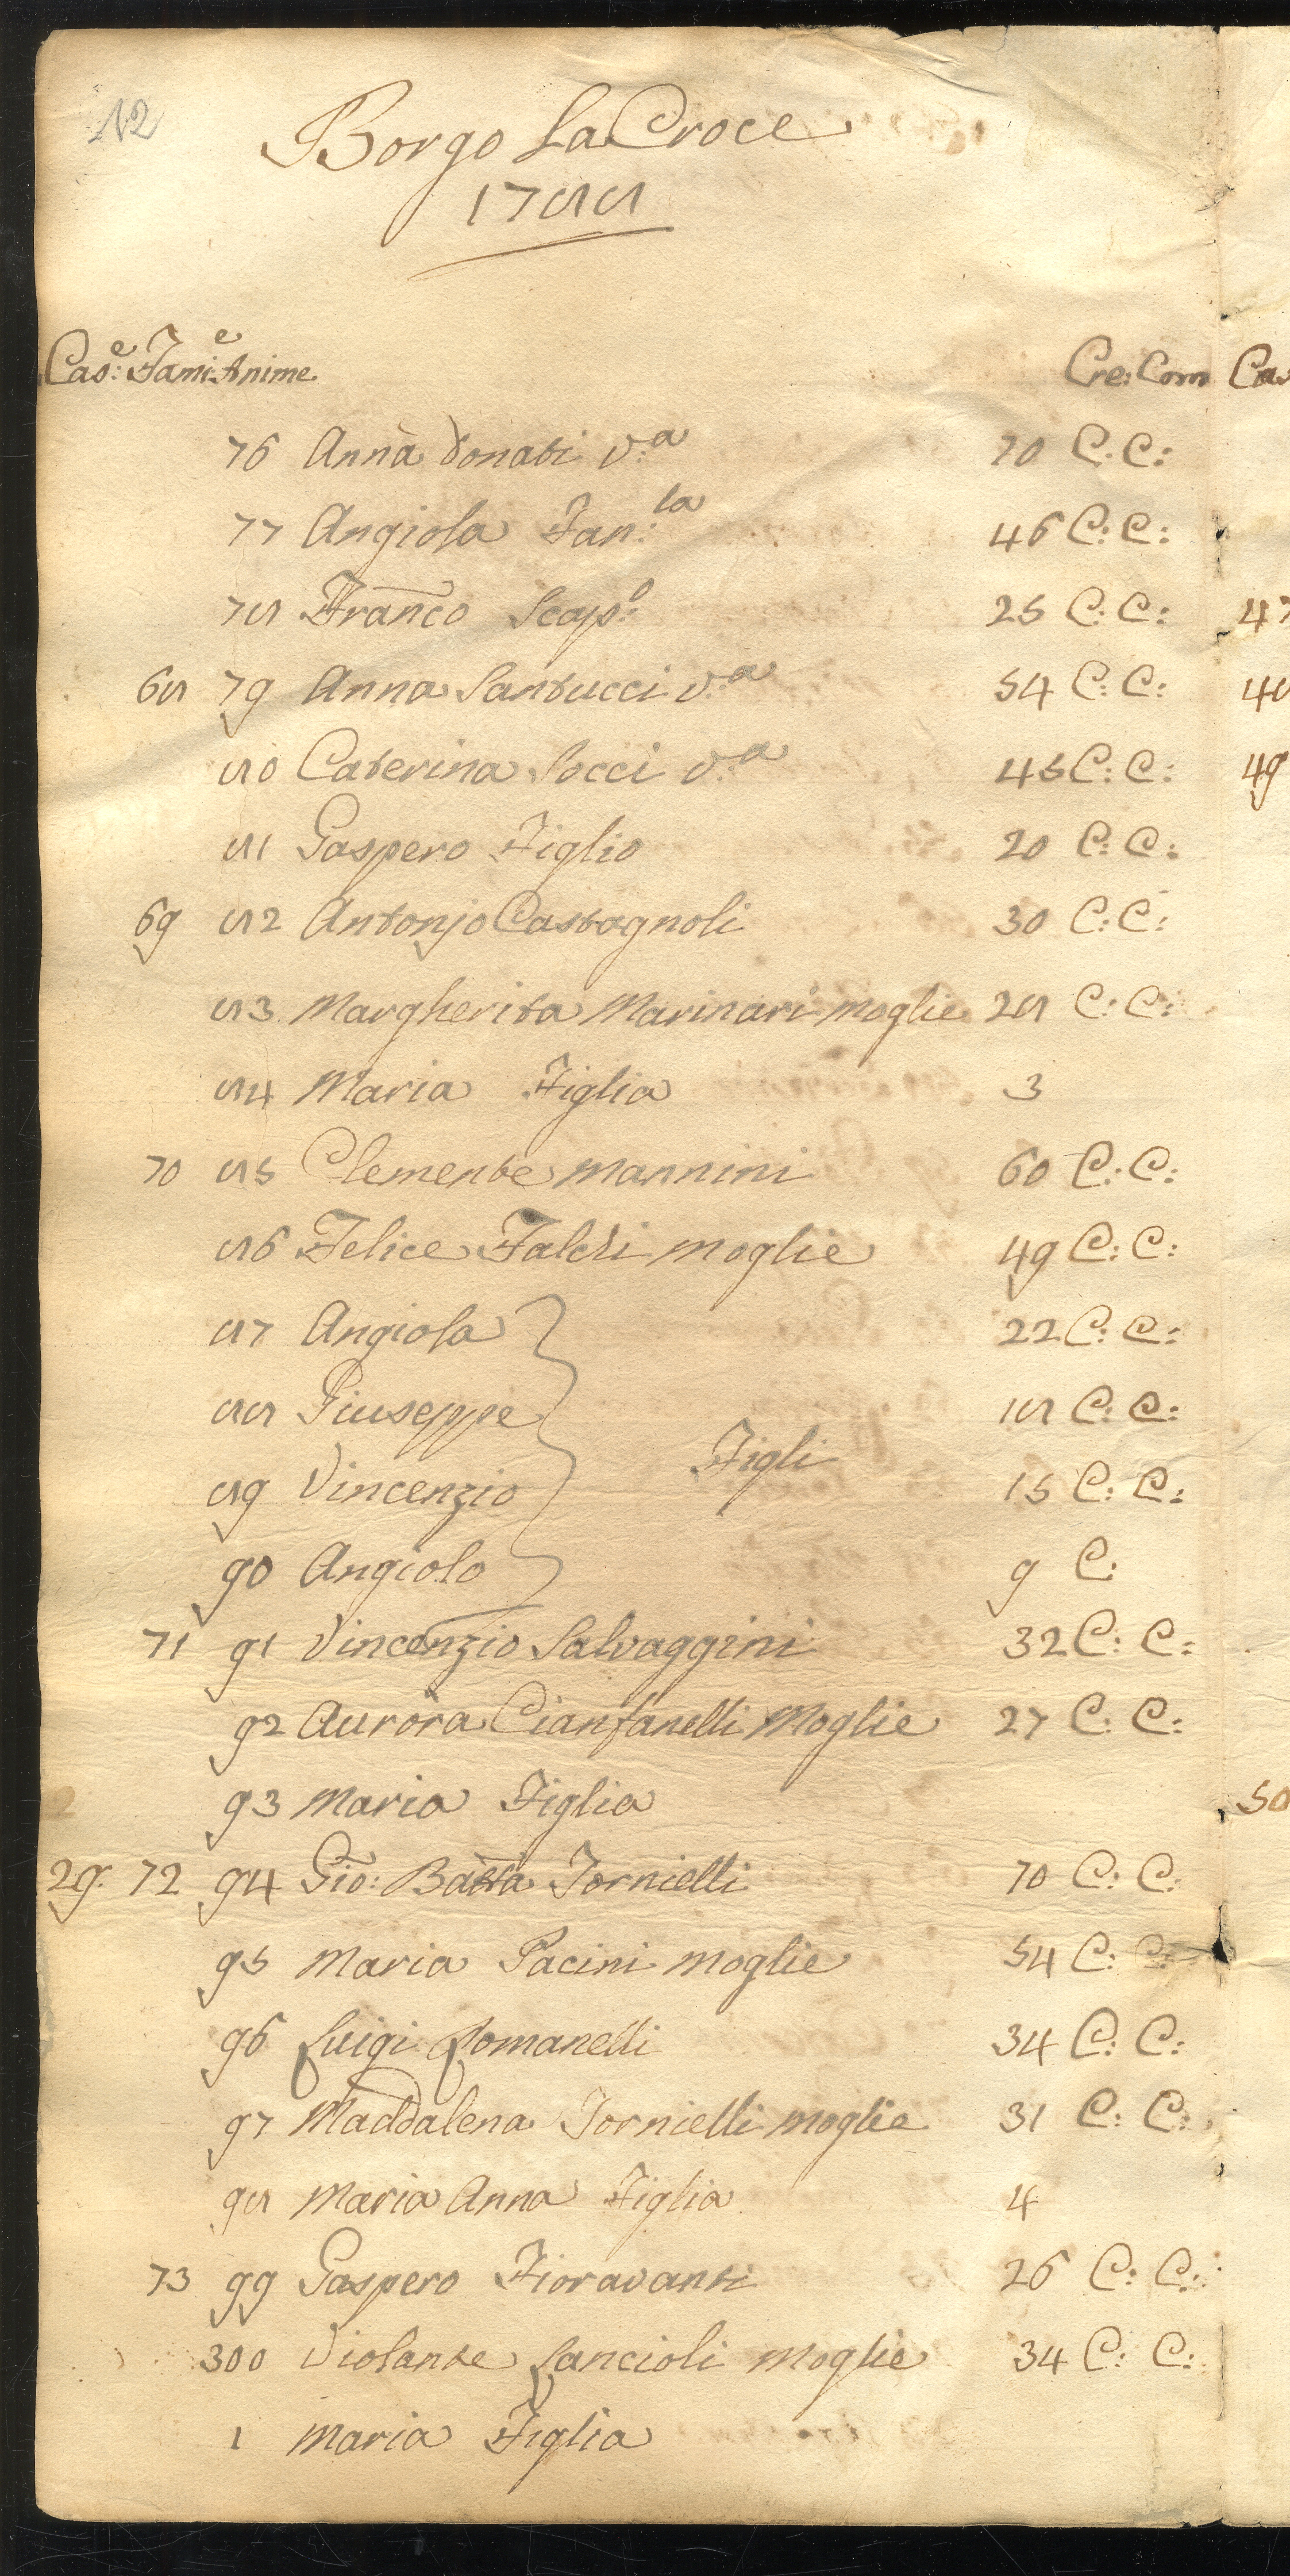 12
Borgo La Croce
1788
Cas:e Fami:e Anime Cre: Com
76 Anna Donati v:a 70 C: C:
77 Angiola Fan:la 46 C: C:
78 Franco Scap:o 25 C: C:
68 79 Anna Santucci v:a 54 C: C:
80 Caterina Socci v:a 45 C: C:
81 Gaspero Figlio 20 C: C:
69 82 Antonjo Castagnoli 30 C: C:
83 Margherita Marinari moglie 28 C: C:
84 Maria Figlia 3
70 85 Clemente Mannini 60 C: C:
86 Felice Falchi moglie 49 C: C:
87 Angiola 22 C: C:
88 Giuseppe 18 C: C:
Figli
89 Vincenzio 15 C: C:
90 Angiolo 9 C:
71 91 Vincenzio Salvaggini 32 C: C:
92 Aurora Cianfanelli Moglie 27 C: C:
93 Maria Figlia
29. 72 94 Gio: Batta Tornielli 70 C: C:
95 Maria Pacini moglie 54 C: C:
96 Luigi Romanelli 34 C: C:
97 Maddalena Tornielli moglie 31 C: C:
98 Maria Anna Figlia 4
73 99 Gaspero Fioravanti 26 C: C:
300 Violante Lancioli moglie 34 C: C:
1 Maria Figlia
47
48
49
50